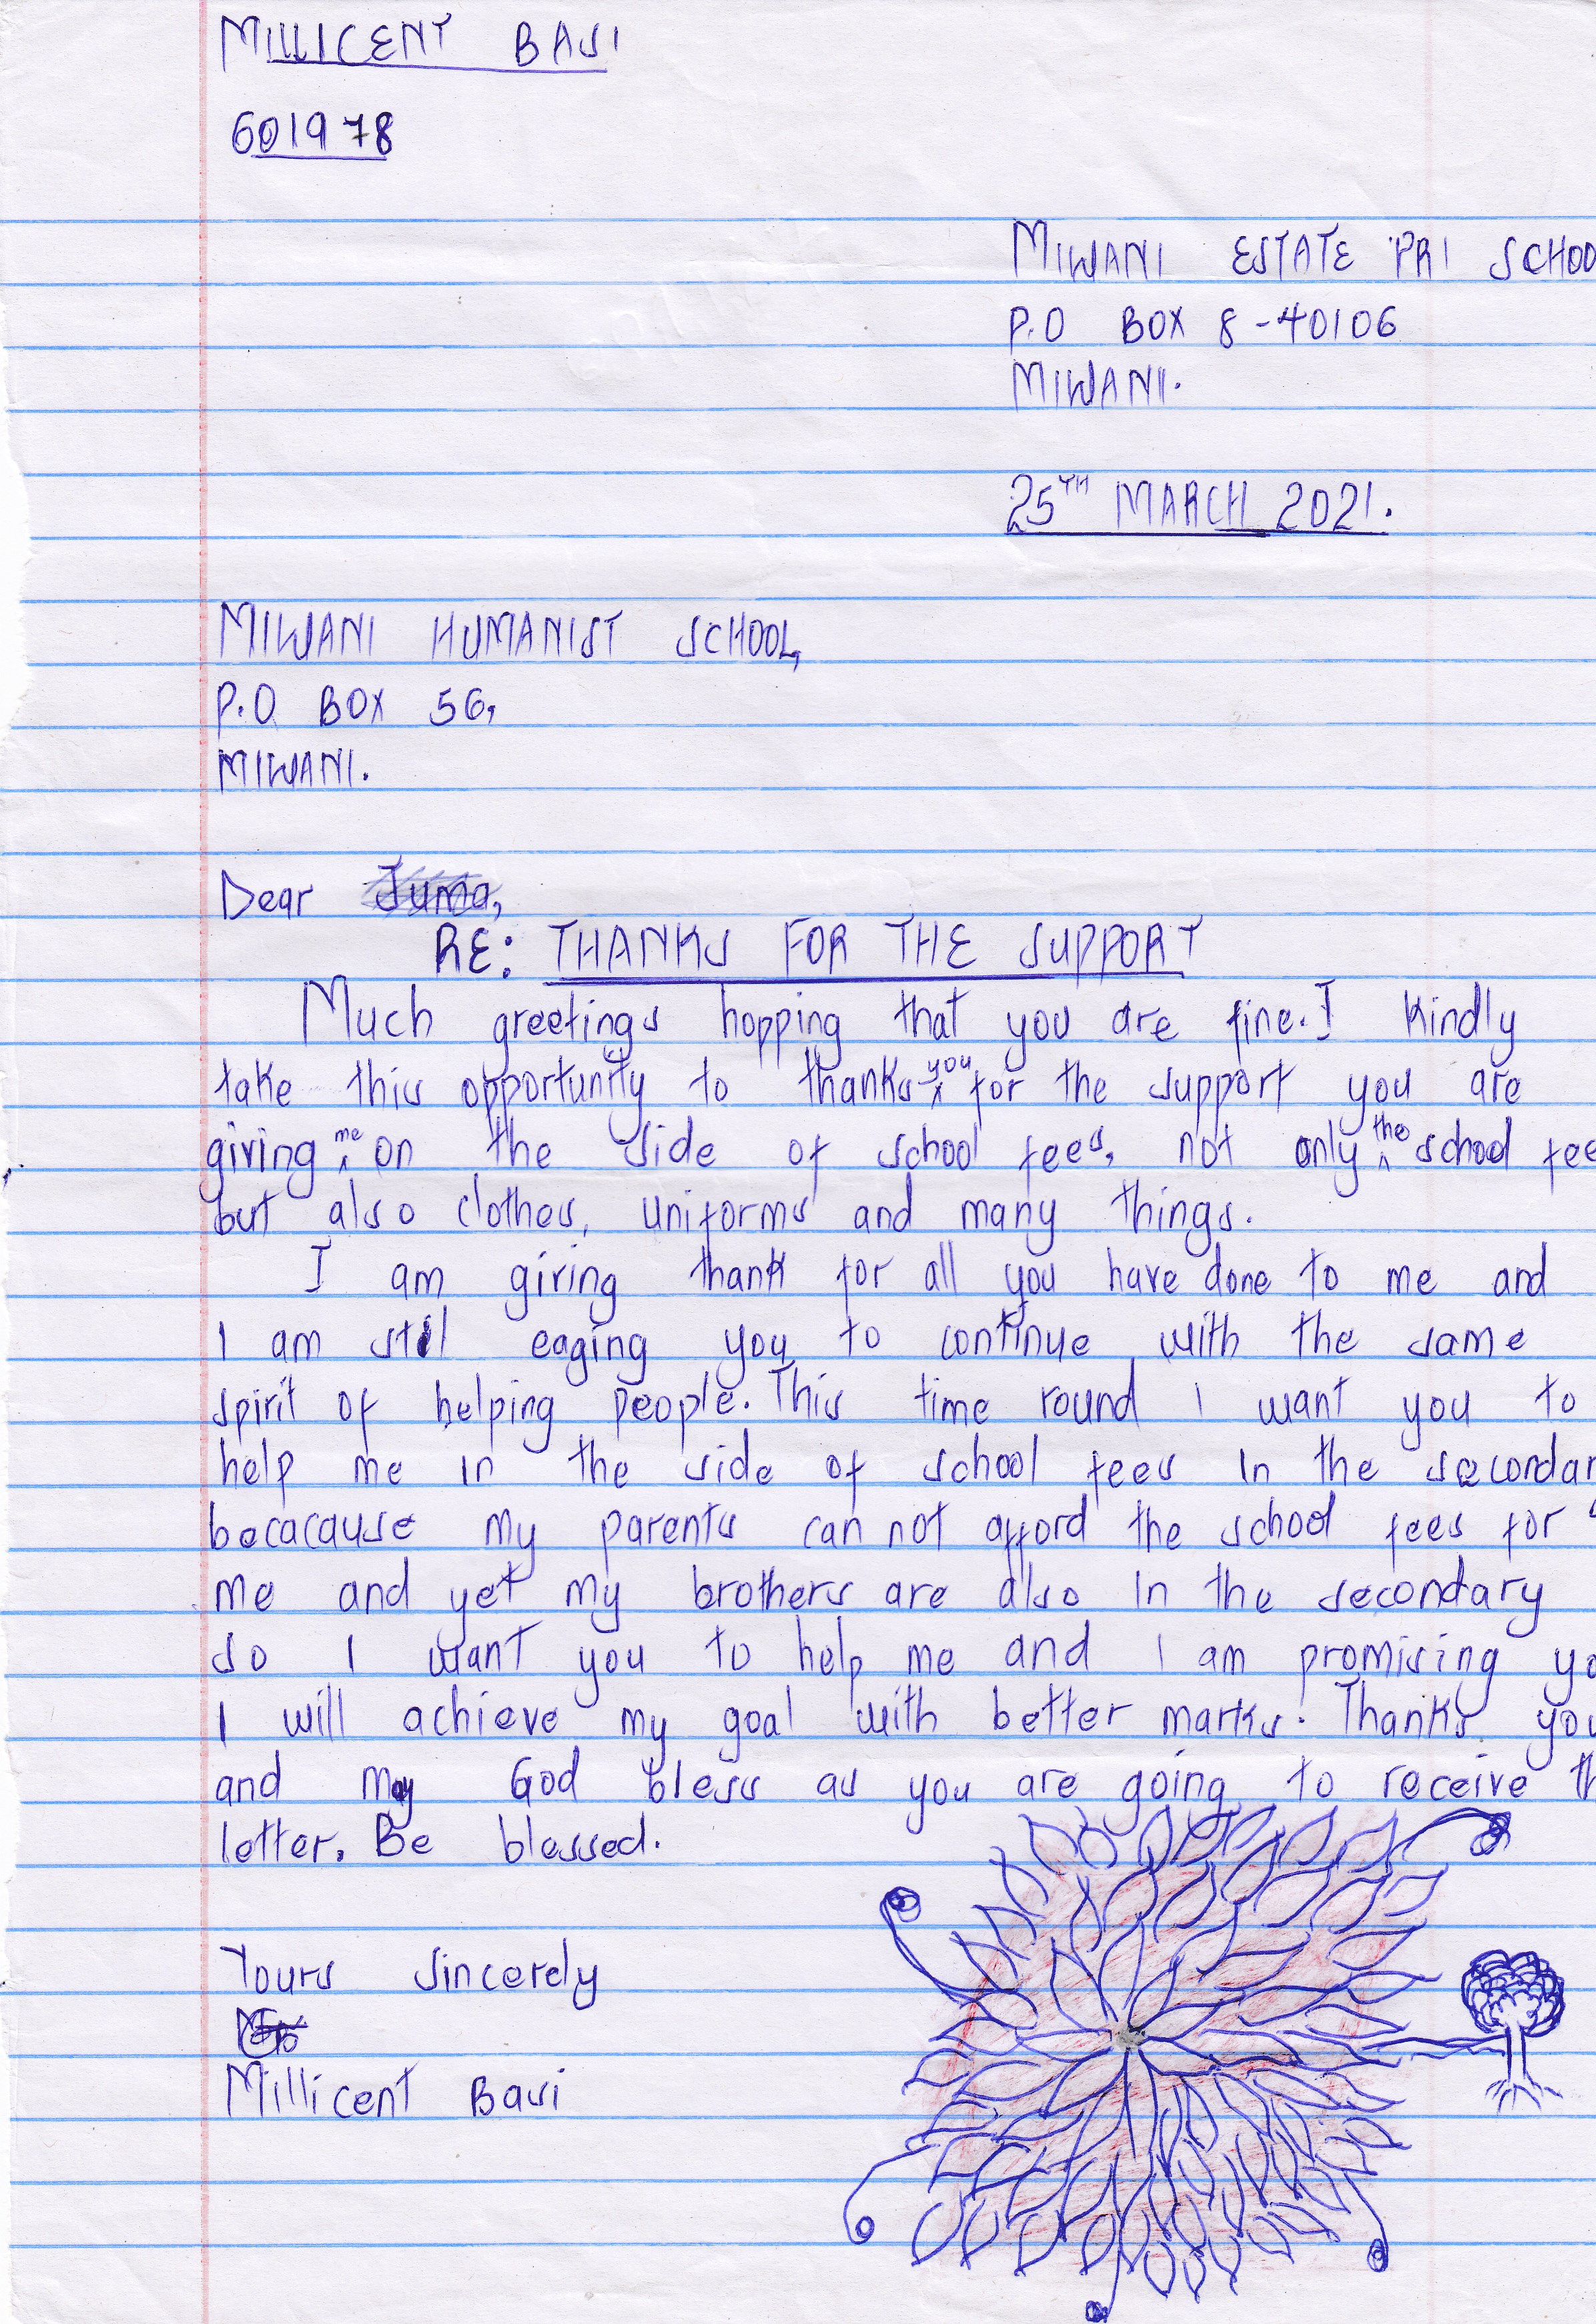 MILLICENT BASI
601978
MIWANI ESTATE PRI SCHOO
P.O BOX 8-40106
MIWANI.
25TH MARCH 2021.
MIWANI HUMANIST SCHOOL,
P.O BOX 56,
MIWANI.
Dear Juma,
RE: THANKS FOR THE SUPPORT
Much greetings hopping that you are fine. I kindly
take this opportunity to thanks you for the support you are
giving me on the side of school fees, not only the school fee
but also clothes, uniforms and many things.
I am giving thank for all you have done to me and
I am still eaging you to continue with the same
spirit of helping people. This time round I want you to
help me in the side of school fees in the secondar
becacause my parents can not afford the school fees for
me and yet my brothers are also in the secondary
so I want you to help me and I am promising yo
I will achieve my goal with better marks. Thanks you
and may God bless as you are going to receive th
letter. Be blessed.
Yours sincerely
Millicent Basi